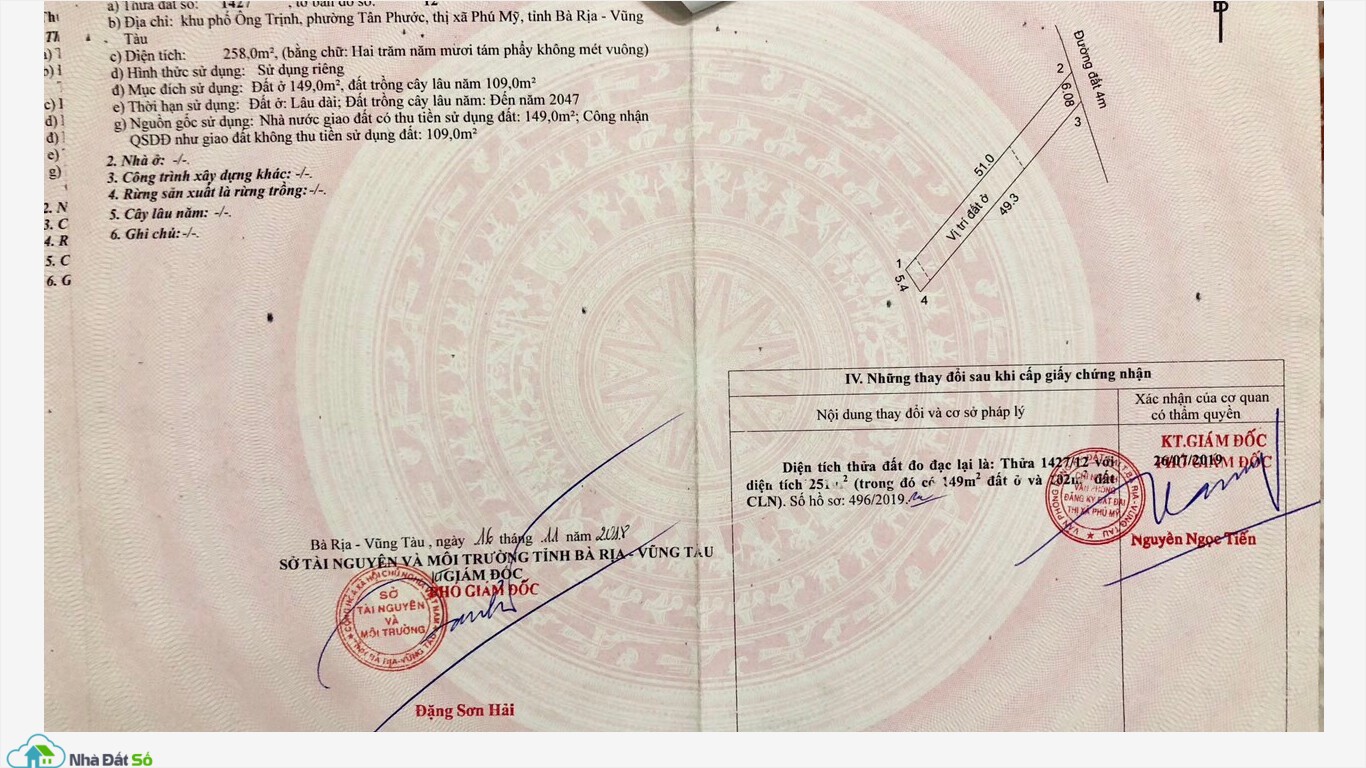 a) Thửa đất số: 1427, tờ bản đồ số: 12
b) Địa chỉ: khu phố Ông Trịnh, phường Tân Phước, thị xã Phú Mỹ, tỉnh Bà Rịa - Vũng
Tàu
c) Diện tích: 258,0m², (bằng chữ: Hai trăm năm mươi tám phẩy không mét vuông)
d) Hình thức sử dụng: Sử dụng riêng
đ) Mục đích sử dụng: Đất ở 149,0m², đất trồng cây lâu năm 109,0m²
e) Thời hạn sử dụng: Đất ở: Lâu dài; Đất trồng cây lâu năm: Đến năm 2047
g) Nguồn gốc sử dụng: Nhà nước giao đất có thu tiền sử dụng đất: 149,0m²; Công nhận
QSDĐ như giao đất không thu tiền sử dụng đất: 109,0m²
2. Nhà ở: -/-.
3. Công trình xây dựng khác: -/-.
4. Rừng sản xuất là rừng trồng: -/-.
5. Cây lâu năm: -/-.
6. Ghi chú: -/-.
c)
d)
đ)
e)
g)
2. N
3. C
4. R
5. C
6. G
Bà Rịa - Vũng Tàu , ngày 16 tháng 11 năm 2018
SỞ TÀI NGUYÊN VÀ MÔI TRƯỜNG TỈNH BÀ RỊA - VŨNG TÀU
GIÁM ĐỐC
PHÓ GIÁM ĐỐC
SỞ
TÀI NGUYÊN
VÀ
MÔI TRƯỜNG
Đặng Sơn Hải
Đường đất 4m
2
6.08
3
51.0
49.3
Vị trí đất ở
1
5.4
4
IV. Những thay đổi sau khi cấp giấy chứng nhận
Nội dung thay đổi và cơ sở pháp lý
Xác nhận của cơ quan
có thẩm quyền
Diện tích thửa đất đo đạc lại là: Thửa 1427/12 với
diện tích 251 m² (trong đó có 149m² đất ở và 102m² đất
CLN). Số hồ sơ: 496/2019.
KT.GIÁM ĐỐC
26/07/2019
PHÓ GIÁM ĐỐC
CHI NHÁNH
VĂN PHÒNG
ĐĂNG KÝ ĐẤT ĐAI
THỊ XÃ PHÚ MỸ
Nguyễn Ngọc Tiến
Nhà Đất Số